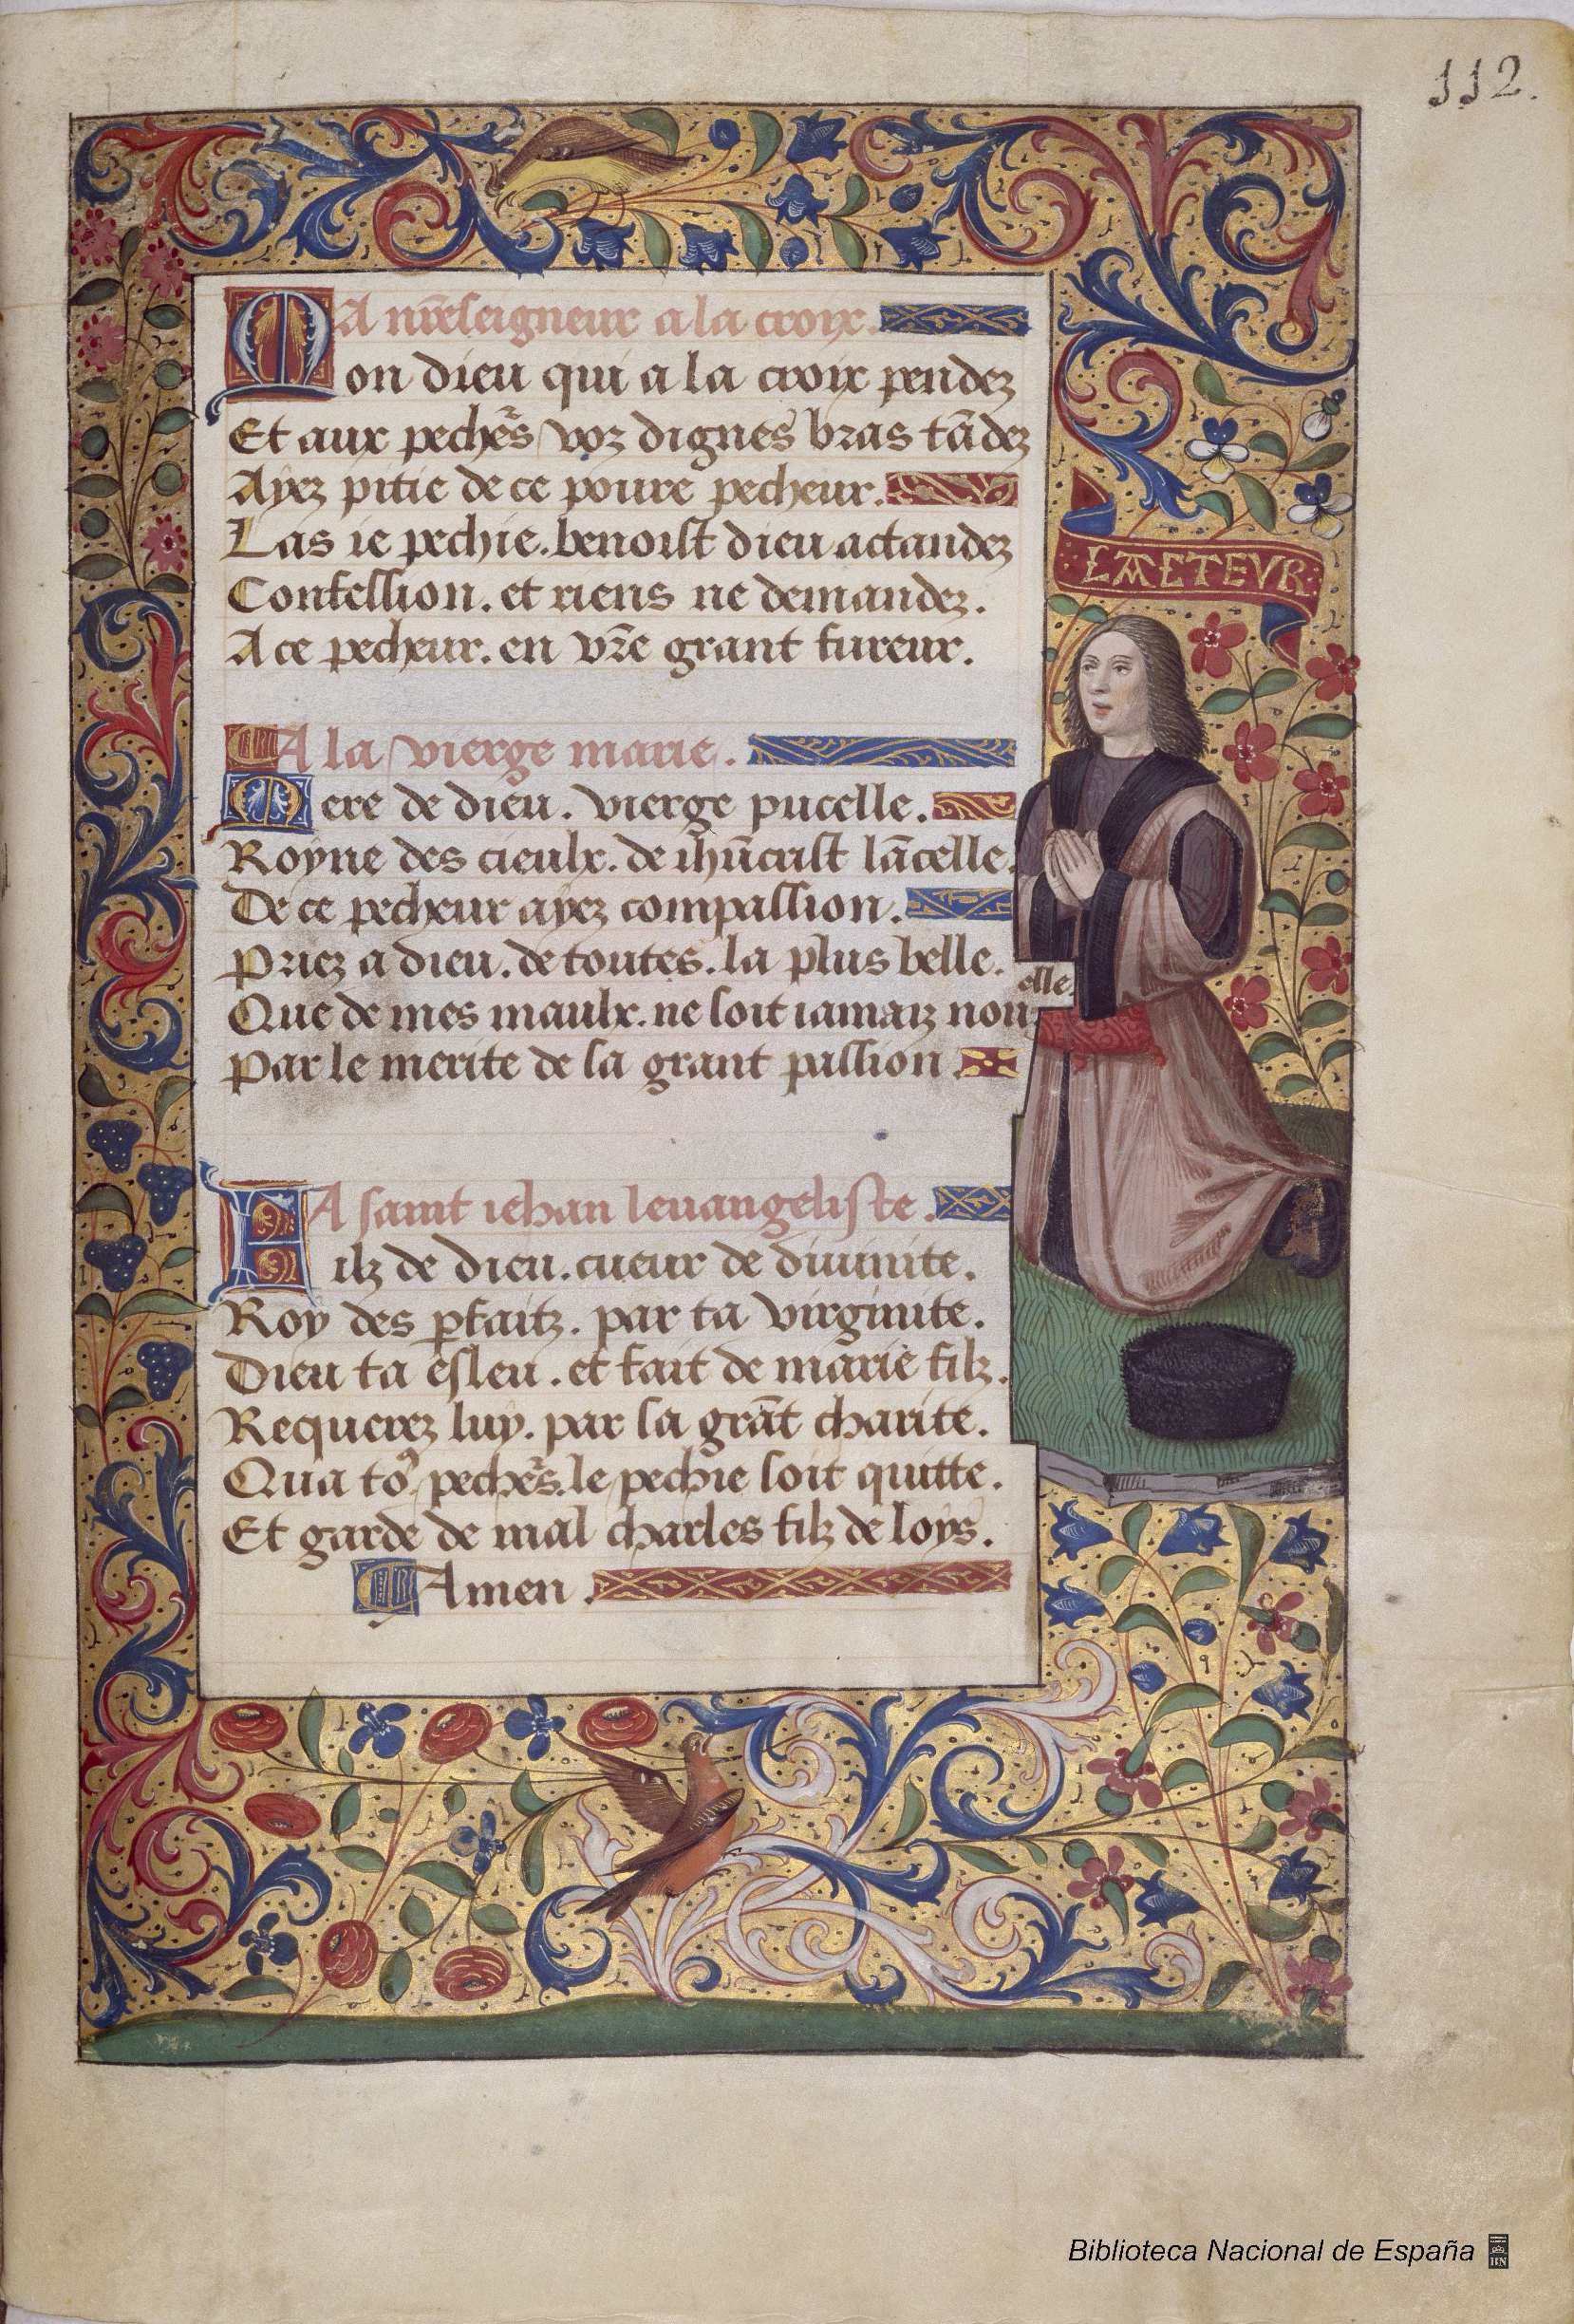 112.
A nr̄eseigneur a la croix.
Mon dieu qui a la croix pendez
Et aux pechr̄s voz dignes bras tādez
Ayez pitie de ce poure pecheur.
Las ie pechie. benoist dieu actandez
Confession. et riens ne demandez.
A ce pecheur. en vr̄e grant fureur.
LACTEVR
A la vierge marie.
Mere de dieu. vierge pucelle.
Royne des cieulx. de ihūcrist lācelle.
De ce pecheur ayez compassion.
Priez a dieu. de toutes. la plus belle.
Que de mes maulx. ne soit iamaiz nouuelle.
Par le merite de sa grant passion.
A saint iehan leuangeliste.
Filz de dieu. cueur de diuinite.
Roy des ꝑfaitz. par ta virginite.
Dieu ta esleu. et fait de marie filz.
Requerez luy. par sa grāt charite.
Qua toꝰ pechr̄s. le pechie soit quitte.
Et garde de mal charles filz de loys.
Amen.
Biblioteca Nacional de España